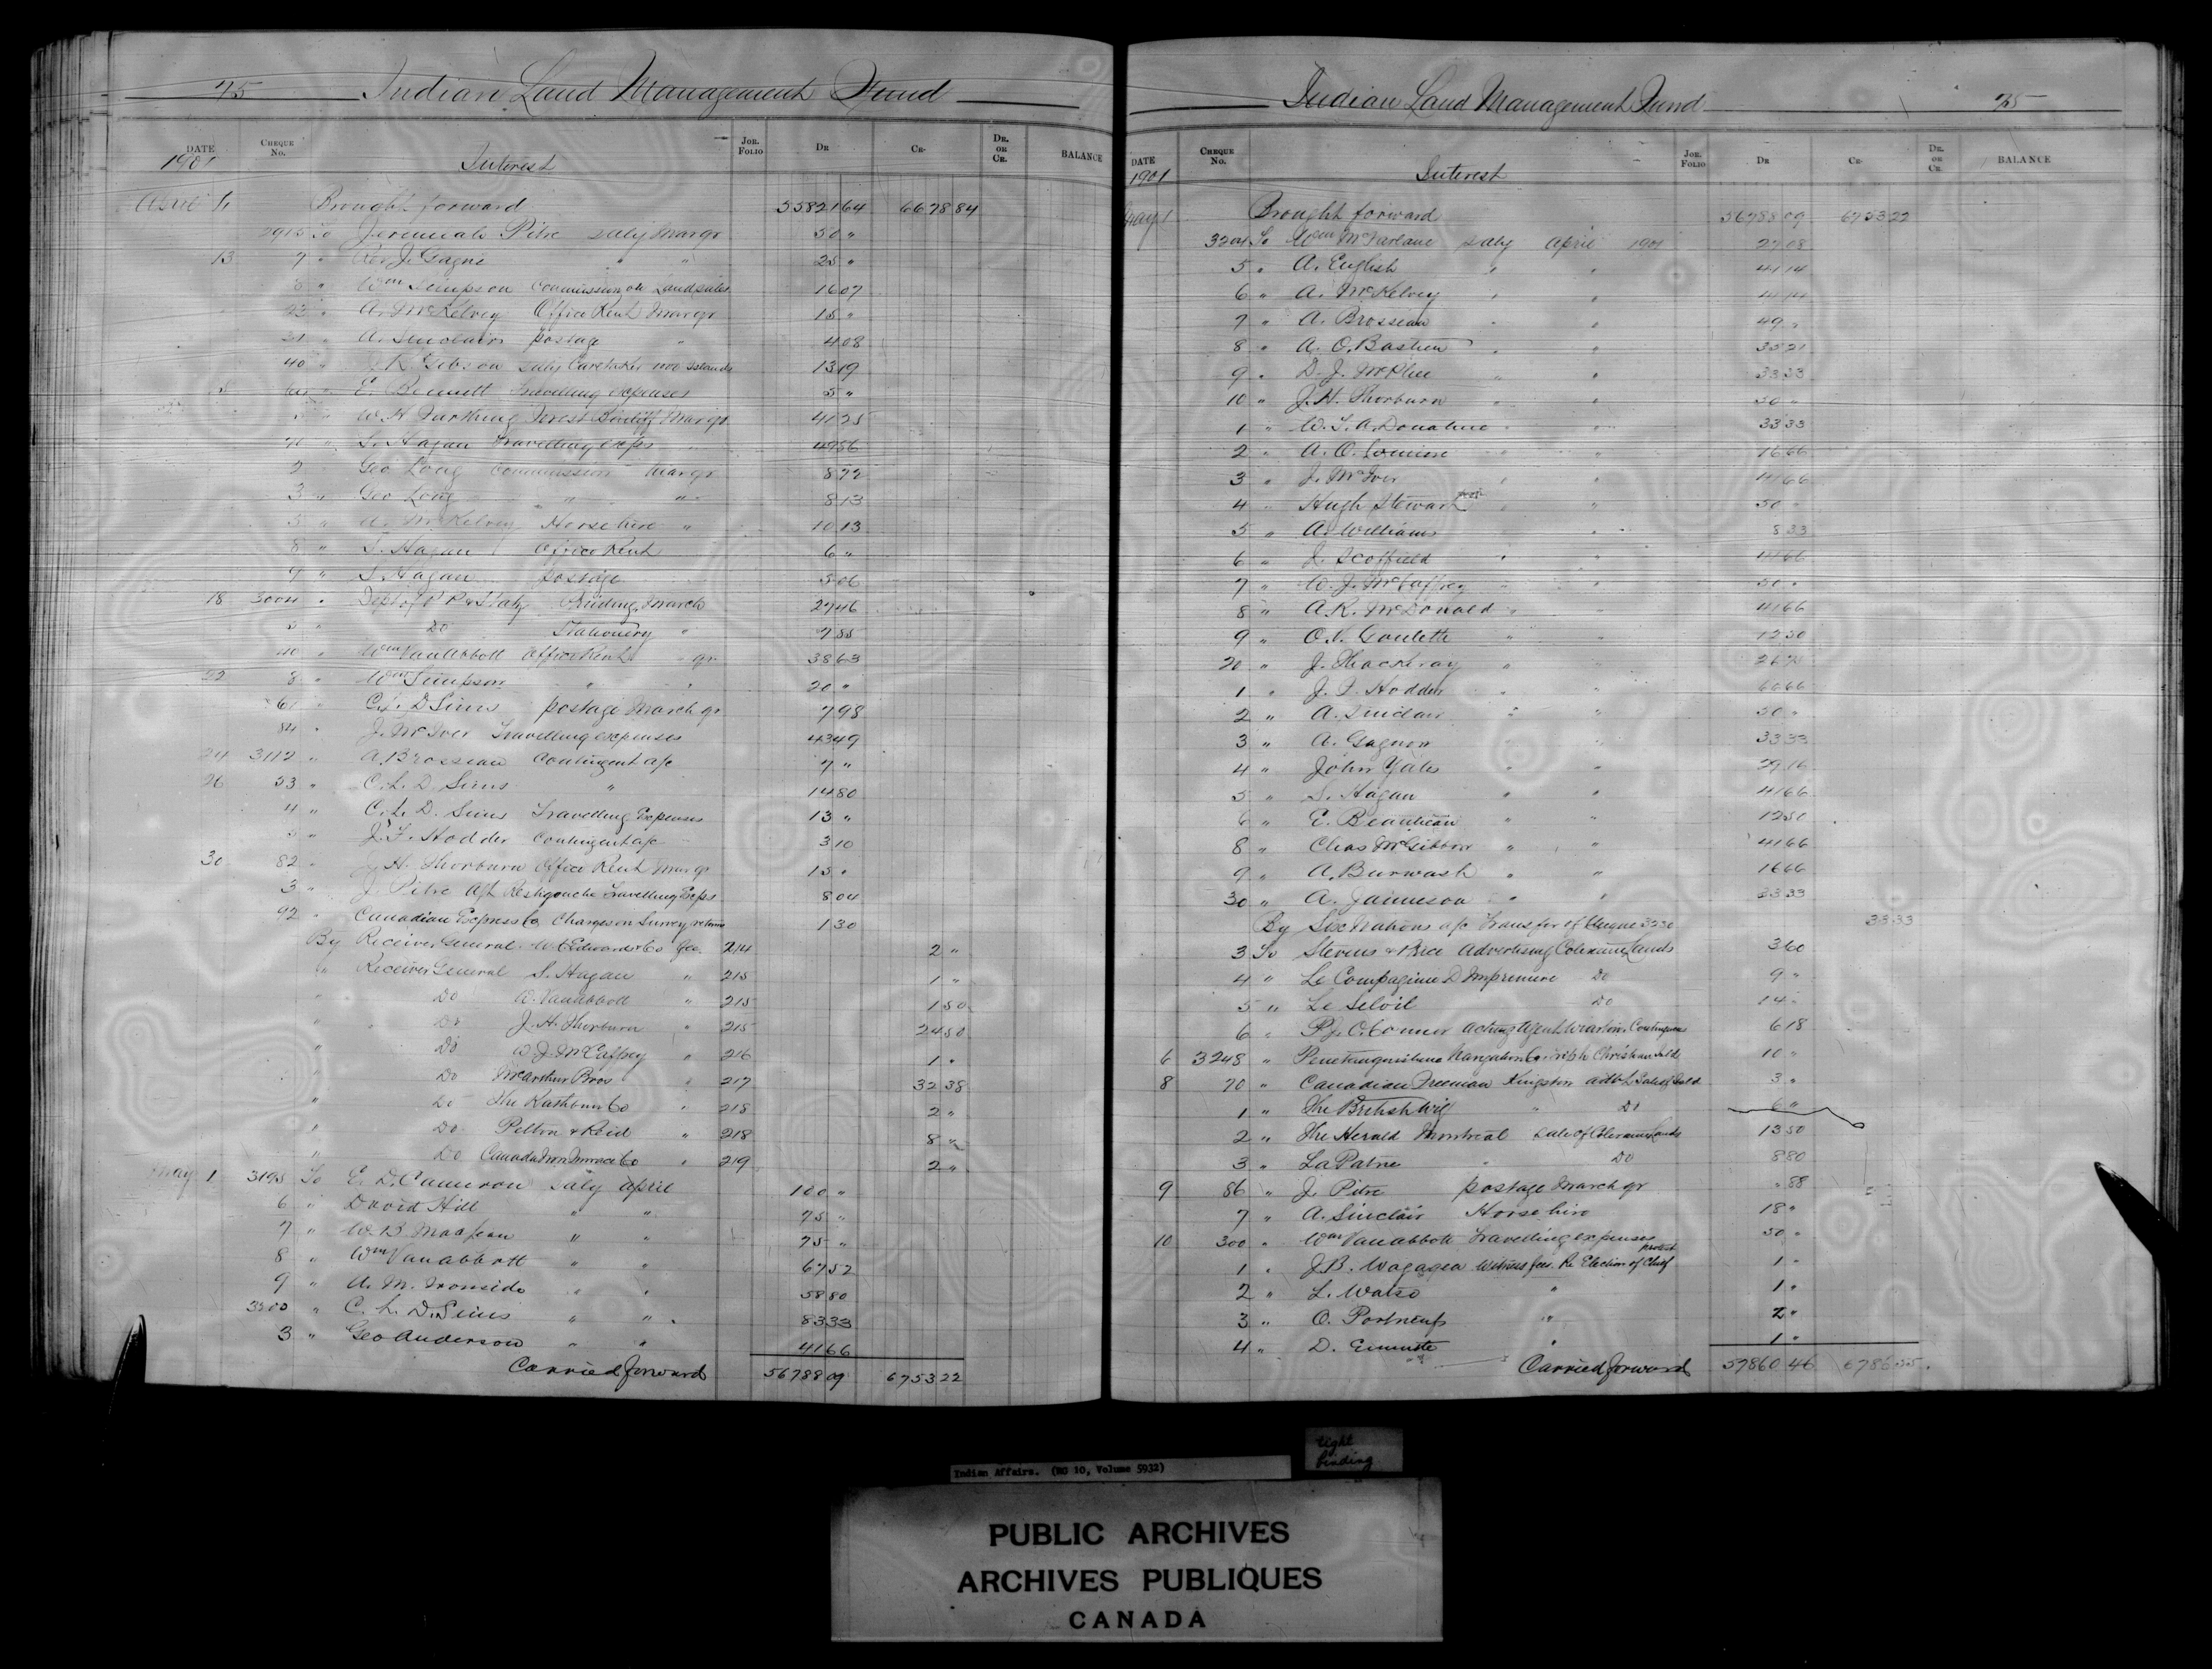 75 Indian Land Management Fund
DATE CHEQUE No. JOR. FOLIO DR CR. DR. OR CR. BALANCE
1901 Interest
April Brought forward 55821 64 6678 84
To Jeremiah Pitre saly Mar qr 50 "
13 7 " Rev J. Gagné " " 25 "
8 " Wm Simpson Commission on Land sales 16 07
" A. McKelvey Office Rent Mar qr 15 "
" A. Sinclair postage " 4 08
40 " J. R. Gibson saly Caretaker 1000 Islands 13 19
" E. Bennett Travelling expenses 5 "
" W. H. Farthing Forest Bailiff Mar qr 41 25
" S. Hagan Travelling exps
2 " Geo Long Commission Mar qr 8 72
3 " Geo Long " " 8 13
5 " A. McKelvey Horse hire " 10 13
8 " S. Hagan Office Rent 6 "
9 " S. Hagan postage 5 06
18 3004 " Dept of P. P. & Staty Printing March 27 46
5 " Do Stationery " 7 55
40 " Wm Van Abbott Office Rent " qr 38 63
22 8 " Wm Simpson " " 20 "
61 " C. L. D. Sims postage March qr 7 98
84 " J. McIver Travelling expenses 43 49
24 3112 " A. Brosseau Contingent a/c 7 "
26 53 " C. L. D. Sims " 14 80
4 " C. L. D. Sims Travelling Expenses 13 "
5 " J. F. Hodder Contingent a/c 3 10
30 82 " J. H. Thorburn Office Rent Mar qr 15 "
3 " J. Pitre Agt Restigouche Travelling Exps 8 04
92 " Canadian Express Co Charges on Survey returns 1 30
By Receiver General W. C. Edwards & Co Geo. 214 2 "
" Receiver General S. Hagan " 215 1 "
" Do W. Van Abbott " 215 1 50
" Do J. H. Thorburn " 215 24 50
" Do W. J. McCaffrey " 216 1 "
" Do McArthur Bros " 217 32 38
" Do The Rathbun Co " 218 2 "
" Do Pelton & Reid " 218 8 "
" Do Canada Iron Furnace Co " 219 2 "
May 1 3195 To E. D. Cameron saly April 100 "
6 " David Hill " " 75 "
7 " W. B. Maclean " " 75 "
8 " Wm Van Abbott " " 67 52
9 " A. M. Ironside " " 58 80
3200 " C. L. D. Sims " " 83 33
3 " Geo Anderson " " 41 66
Carried forward 56788 09 6753 22
Indian Land Management Fund 75
DATE CHEQUE No. JOR. FOLIO DR CR. DR. OR CR. BALANCE
1901 Interest
May 1 Brought forward 56788 09 6753 22
3204 To Wm McFarlane saly April 1901 27 08
5 " A. English " " 41 14
6 " A. McKelvey " "
7 " A. Brosseau " " 49 "
8 " A. O. Bastien " " 35 21
9 " D. J. McPhee " " 33 33
10 " J. H. Thorburn " " 50 "
1 " W. S. A. Donahue " " 33 33
2 " A. O. " " 16 66
3 " J. McIver " " 41 66
4 " Hugh Stewart " " 50 "
5 " A. Williams " " 8 33
6 " J. Scoffield " " 41 66
7 " W. J. McCaffrey " " 50 "
8 " A. R. McDonald " " 41 66
9 " O. V. Goulette " " 12 50
20 " J. Thackeray " "
1 " J. F. Hodder " " 60 66
2 " A. Sinclair " " 50 "
3 " A. Gagnon " " 33 33
4 " John Yates " " 29 16
5 " S. Hagan " " 41 66
6 " E. Beaulieau " " 12 50
8 " Chas McGibbon " " 41 66
9 " A. Burwash " " 16 66
30 " A. Jamieson " " 33 33
By Six Nations a/c transfer of Cheque 3230 33 33
3 To Stevens & Price Advertising Coleraine Lands 3 60
4 " Le Compagnie D'Imprimerie Do 9 "
5 " Le Do 14 "
6 " P. J. O'Connor Acting Agent Wiarton Contingencies 6 18
6 3248 " Penetanguishene Navigation Co Christian Isld 10 "
8 70 " Canadian Freeman Kingston advt Sale of Isld 3 "
1 " The British Whig " Do 6 "
2 " The Herald Montreal sale of Coleraine Lands 13 50
3 " La Patrie " Do 8 80
9 86 " J. Pitre postage March qr " 88
7 " A. Sinclair Horse hire 18 "
10 300 " Wm Van Abbott Travelling expenses 50 "
1 " J. B. Wagagea Witness fees Re Election of Chief protest 1 "
2 " L. Watso " 1 "
3 " O. Portneuf " 2 "
4 " D. Emmste " 1 "
Carried forward 57860 46 6786 55
Indian Affairs. (RG 10, Volume 5932)
tight
binding
PUBLIC ARCHIVES
ARCHIVES PUBLIQUES
CANADA